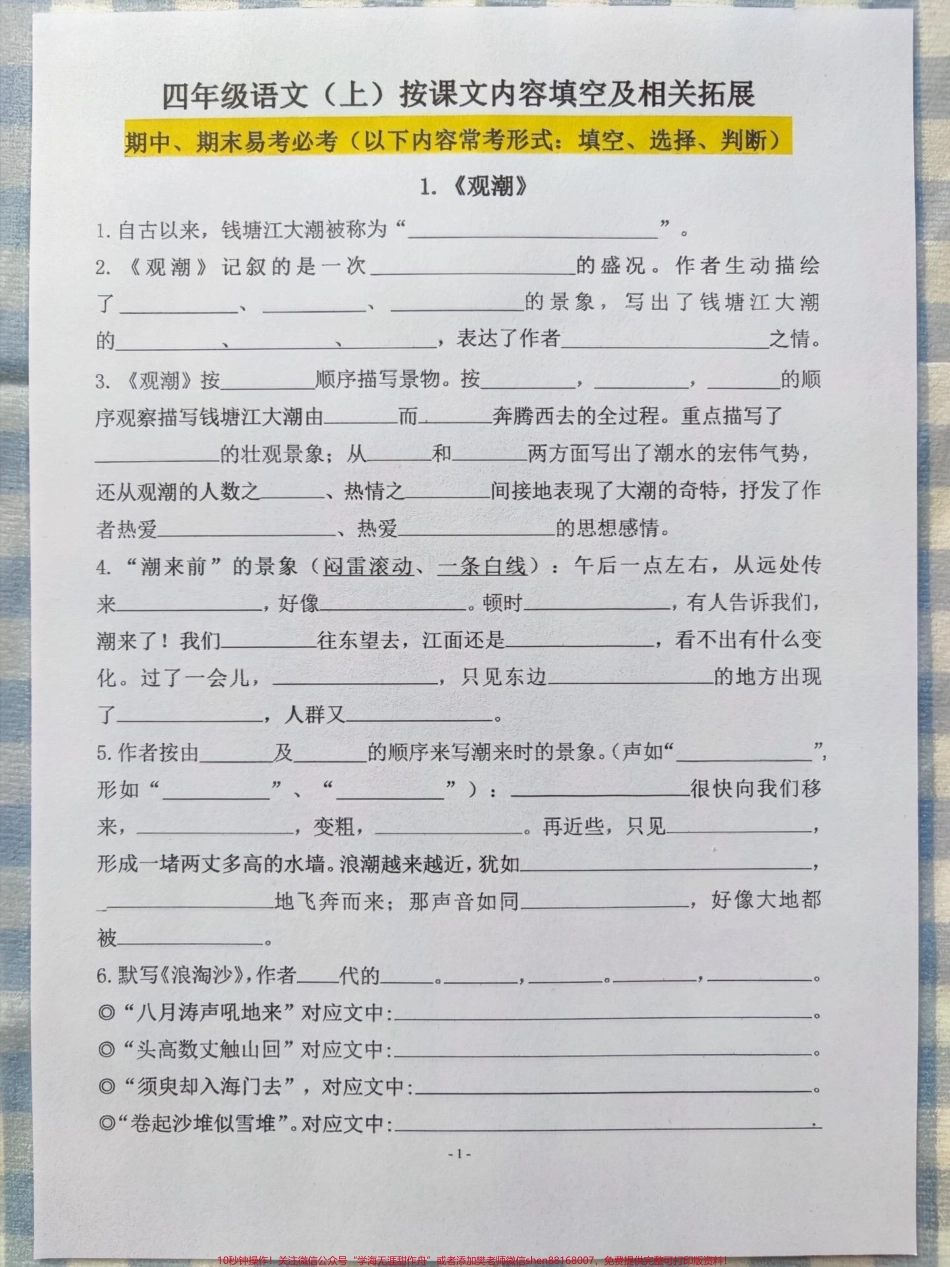 四年级语文（上）按课文内容填空及相关拓展
期中、期末易考必考（以下内容常考形式：填空、选择、判断）
1.《观潮》
1.自古以来，钱塘江大潮被称为“____________”。
2.《观潮》记叙的是一次____________的盛况。作者生动描绘
了________、________、________的景象，写出了钱塘江大潮
的________、________、________，表达了作者____________之情。
3.《观潮》按________顺序描写景物。按________，________，________的顺
序观察描写钱塘江大潮由______而______奔腾西去的全过程。重点描写了
________的壮观景象；从______和______两方面写出了潮水的宏伟气势，
还从观潮的人数之______、热情之______间接地表现了大潮的奇特，抒发了作
者热爱____________、热爱____________的思想感情。
4.“潮来前”的景象（闷雷滚动、一条白线）：午后一点左右，从远处传
来____________，好像____________。顿时____________，有人告诉我们，
潮来了！我们________往东望去，江面还是____________，看不出有什么变
化。过了一会儿，____________，只见东边____________的地方出现
了____________，人群又____________。
5.作者按由______及______的顺序来写潮来时的景象。（声如“____________”，
形如“________”、“________”）：____________很快向我们移
来，____________，变粗，____________。再近些，只见____________，
形成一堵两丈多高的水墙。浪潮越来越近，犹如____________，
____________地飞奔而来；那声音如同____________，好像大地都
被____________。
6.默写《浪淘沙》，作者____代的____。________，________。________，________。
◎“八月涛声吼地来”对应文中:____________。
◎“头高数丈触山回”对应文中:____________。
◎“须臾却入海门去”，对应文中:____________。
◎“卷起沙堆似雪堆”。对应文中:____________.
- 1 -
10秒钟操作！关注微信公众号“学海无涯甜作舟”或者添加樊老师微信shen88168007，免费提供完整可打印版资料！